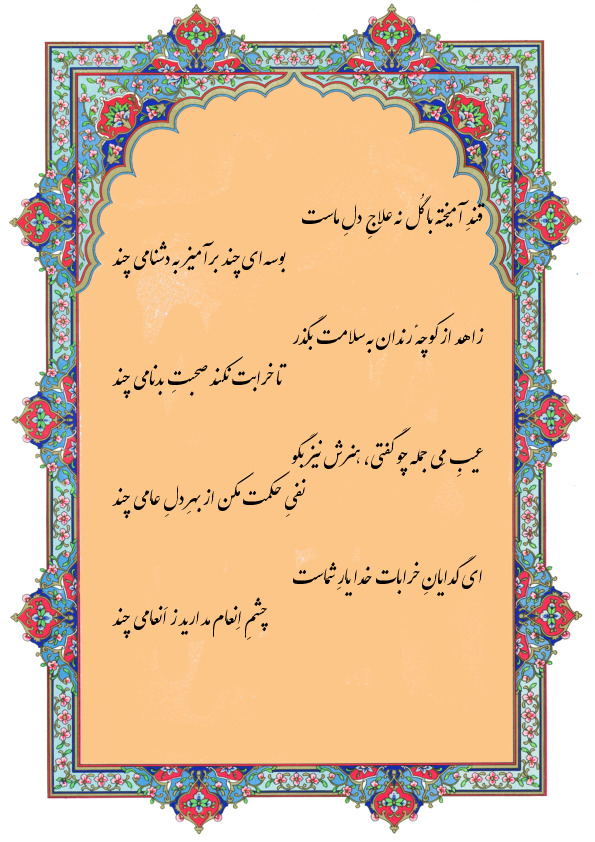 قندِ آمیخته با گُل نه علاجِ دلِ ماست
بوسه‌ای چند برآمیز به دشنامی چند
زاهد از کوچهٔ رندان به سلامت بگذر
تا خرابت نکند صحبتِ بدنامی چند
عیبِ مِی جمله چو گفتی، هنرش نیز بگو
نفیِ حکمت مکن از بهرِ دلِ عامی چند
ای گدایانِ خرابات خدا یارِ شماست
چشمِ اِنعام مدارید ز اَنعامی چند